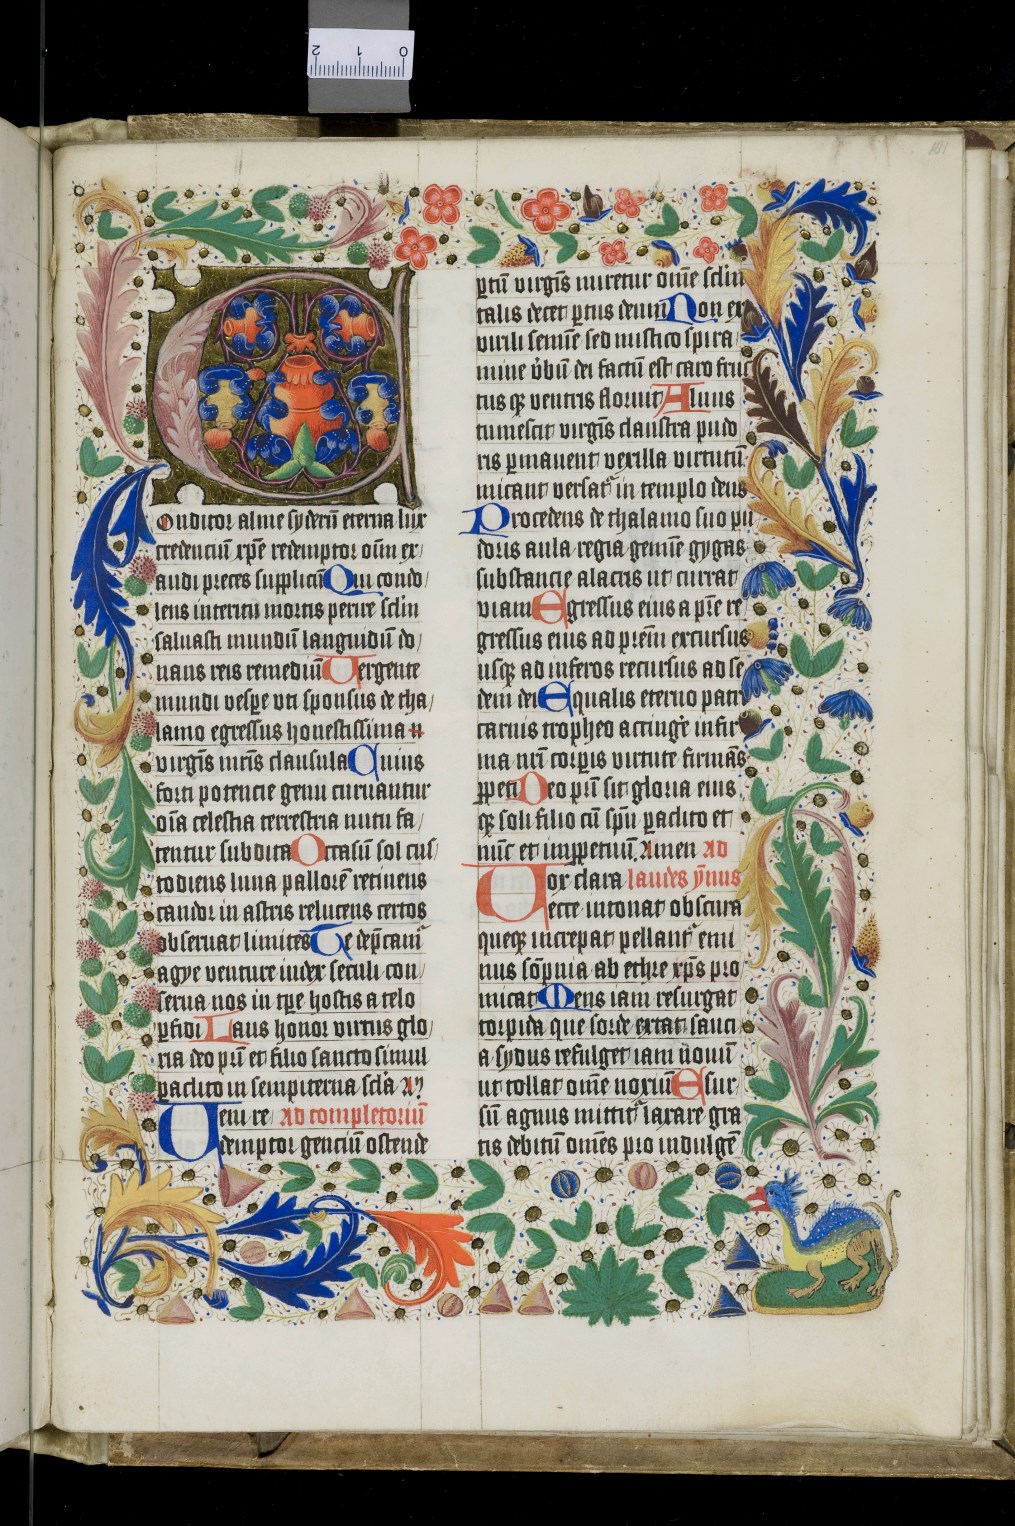 2 1 0
181
Conditor alme syderū eterna lux
credenciū xpē redemptor oīm ex/
audi preces supplicū Qui condo/
lens interitu mortis perire sclm
saluasti mundū languidū do/
nans reis remediū Uergente
mundi vespe vti sponsus de tha/
lamo egressus honestissima
virgīs mr̄is clausula Cuius
forti potencie genu curuantur
oīa celestia terrestria nutu fa/
tentur subdita Occasū sol cus/
todiens luna pallorē retinens
candor in astris relucens certos
obseruat limites Te dep̄camᷣ
agye venture iudex seculi con/
serua nos in tpe hostis a telo
pfidi Laus honor virtus glo/
ria deo pr̄i et filio sancto simul
paclito in sempiterna scl'a Aᷣ
Ueni re/ Ad completoriū
demptor genciū ostende
ptū virgīs miretur oīne sclm
talis decet ptus deum Non ex
virili semīe sed mistico spira/
mine v̓bū dei factū est caro fruc
tus qꝫ ventris floruit Aluus
tumescit virgīs claustra pudo
ris pmanent vexilla virtutū
micant versatᷣ in templo deus
Procedens de thalamo suo pu
doris aula regia gemīe gygas
substancie alacris ut currat
viam Egressus eius a pr̄e re/
gressus eius ad pr̄em excursus
usqꝫ ad inferos recursus ad se
dem dei Equalis eterno patri
carnis tropheo accingere infir
ma nr̄i corpis virtute firmās
ꝑpeti Deo pr̄i sit gloria eius
qꝫ soli filio cū spū paclito et
nūc et imppetuū Amen Ad
Uox clara laudes ȳnus
ecce intonat obscura
queqꝫ increpat pellantᷣ emi
nus sōpnia ab ethre xp̄s pro
micat Mens iam resurgat
torpida que sorde extat sauci
a sydus refulget iam nouū
ut tollat omne noxiū Esur
sū agnus mittitᷣ laxare gra
tis debitū om̄es pro indulgē